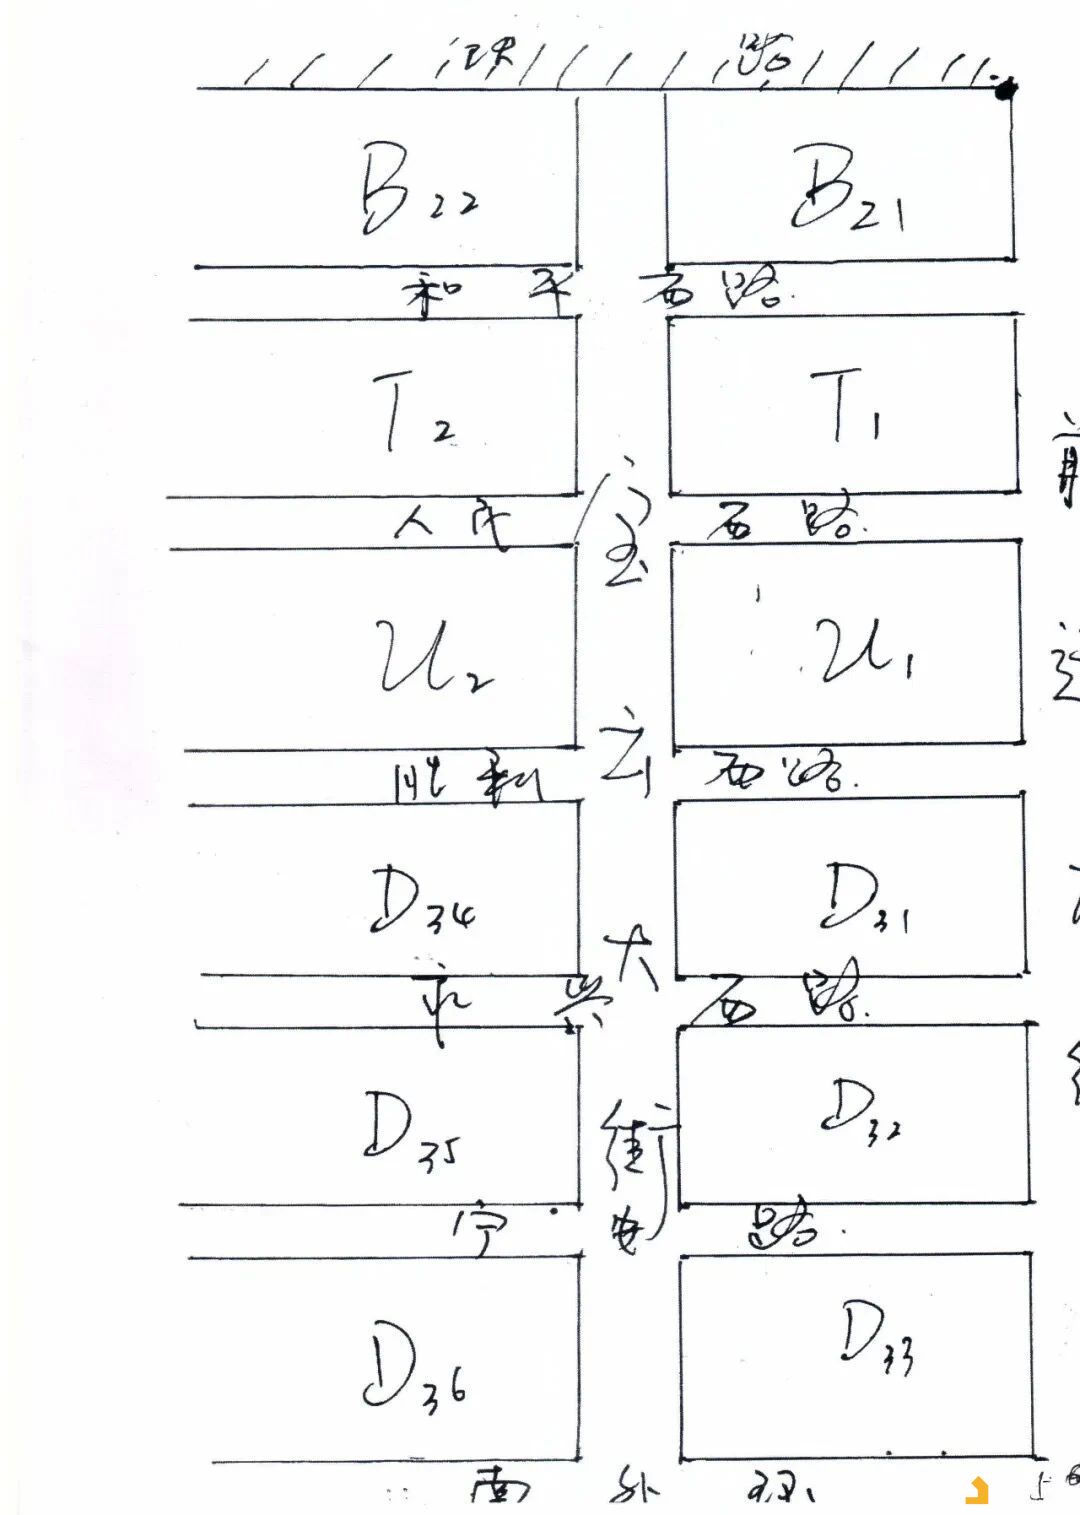 铁路
B22 B21
和平西路.
T2 T1
人民西路.
U2 U1
胜利西路.
D34 D31
永兴西路.
D35 D32
宁安路.
D36 D33
南外环
宝云大街